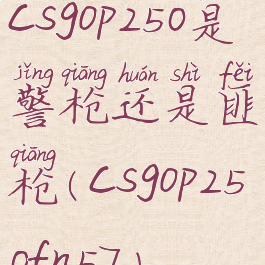 CSGOP250是
jǐng qiāng huán shì fěi
警枪还是匪
qiāng
枪(CSGOP25
0fn57)